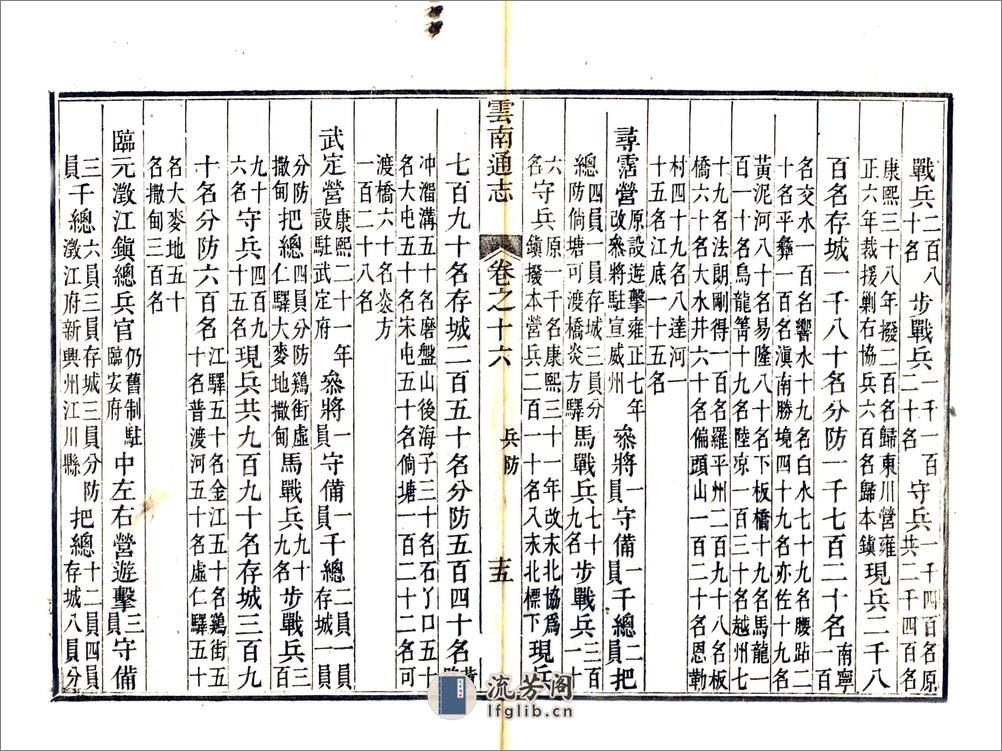 戰兵二百八十名步戰兵一千一百二十名守兵一千四百名原共二千四百名
康熙三十八年撥二百名歸東川營雍正六年裁援剿右協兵六百名歸本鎮現兵二千八
百名存城一千八十名分防一千七百二十名南寧一百
名交水一百名響水十九名白水七十九名腰跕二十名平彝一百名滇南勝境四十九名亦佐十九名
黃泥河八十名易隆八十名下板橋十九名馬龍一百一十名烏龍箐十九名陸凉一百三十名越州七
十九名法朗剛得一百名羅平州二百九十八名板橋六十名大水井六十名偏頭山一百二十名恩勒
村四十九名八達河一十五名江底一十五名
尋霑營原設遊擊雍正七年改叅將駐宣威州叅將一員守備一員千總二員把
總四員一員存城三員分防倘塘可渡橋炎方驛馬戰兵七十九名步戰兵三百一十
六名守兵原一千名康熙三十一年改永北協為鎮撥本營兵二百一十名入永北標下現兵
雲南通志 卷之十六 兵防 十五
七百九十名存城二百五十名分防五百四十名黄
冲溜溝五十名磨盤山後海子三十名石丫口五十名大屯五十名宋屯五十名倘塘一百二十二名可
渡橋六十名炎方一百二十八名
武定營康熙二十一年設駐武定府叅將一員守備一員千總二員一員存城一員
分防撒甸把總四員分防鷄街虛仁驛大麥地撒甸馬戰兵九十九名步戰兵三
九十六名守兵四百九十五名現兵共九百九十名存城三百九
十名分防六百名江驛五十名金江五十名鷄街五十名普渡河五十名虛仁驛五十
名大麥地五十名撒甸三百名
臨元澂江鎮總兵官仍舊制駐臨安府中左右營遊擊三員守備
三員千總六員三員存城三員分防澂江府新興州江川縣把總十二員四員存城八員分
流芳阁
lfglib.cn